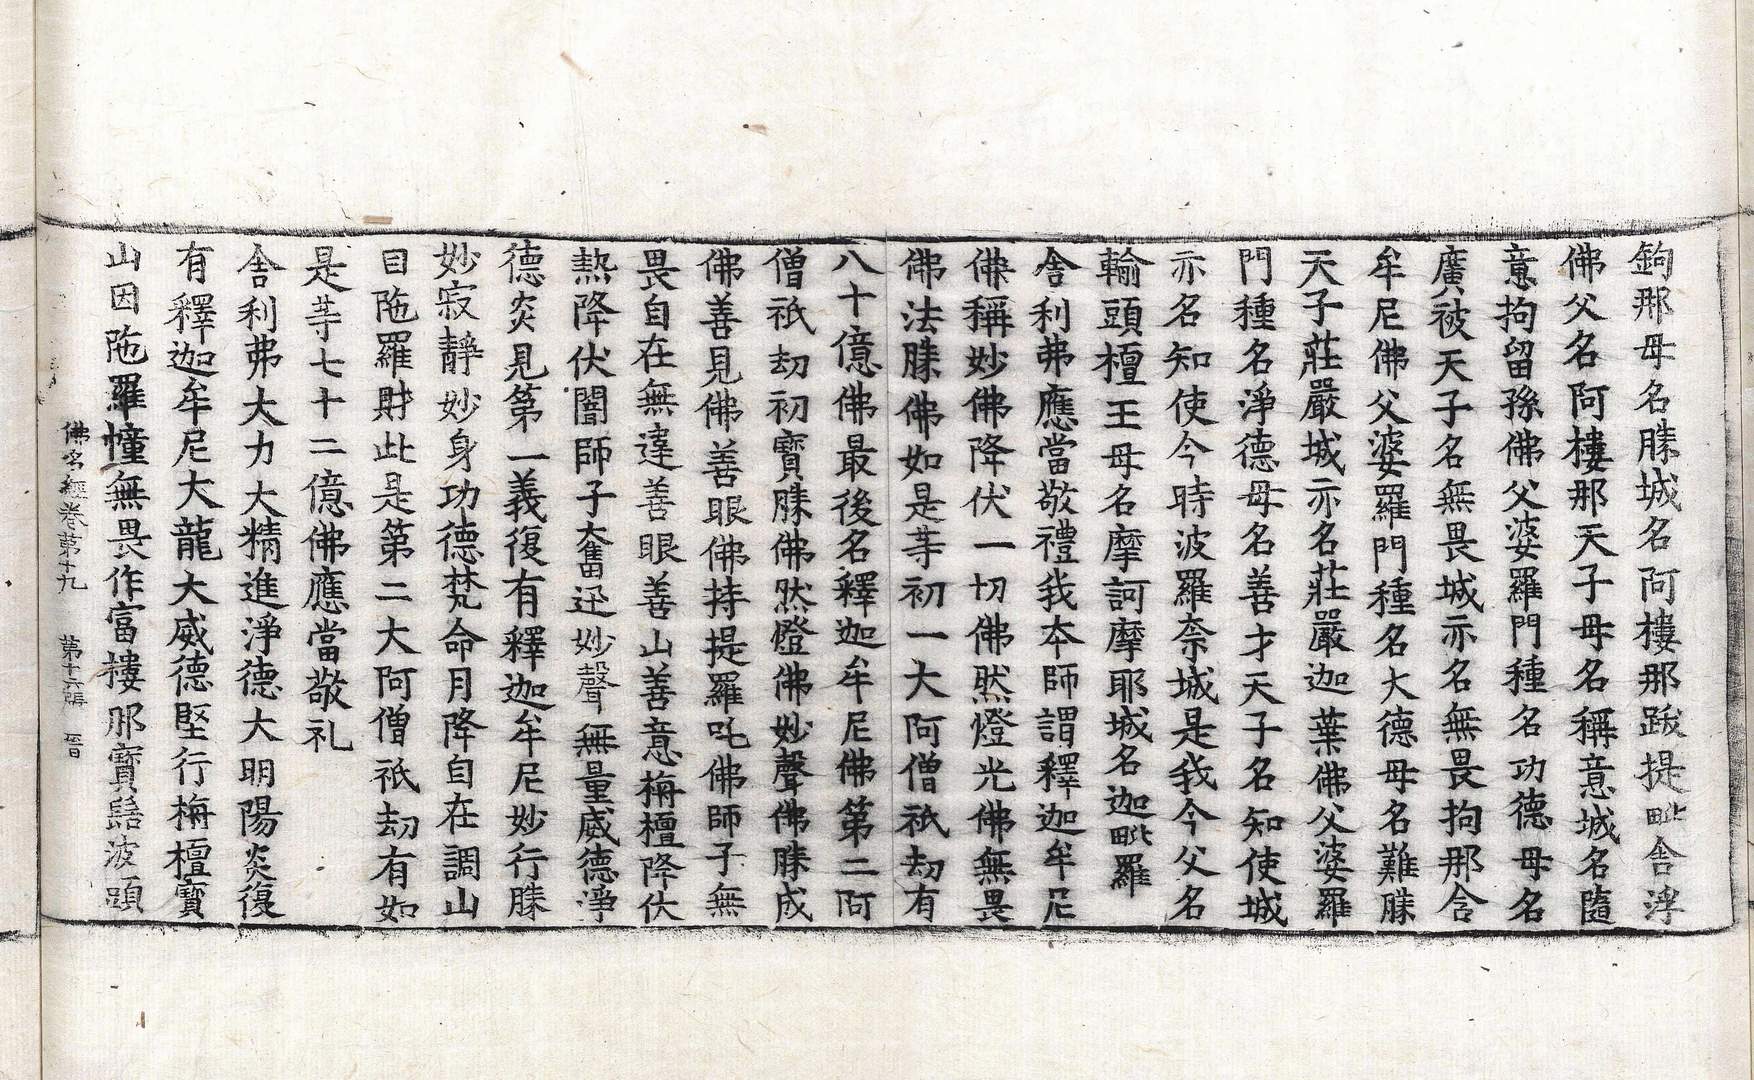 鉤那母名勝城名阿樓那跋提毗舍浮
佛父名阿樓那天子母名稱意城名隨
意拘留孫佛父婆羅門種名功德母名
廣被天子名無畏城亦名無畏拘那含
牟尼佛父婆羅門種名大德母名難勝
天子莊嚴城亦名莊嚴迦葉佛父婆羅
門種名淨德母名善才天子名知使城
亦名知使今時波羅奈城是我今父名
輸頭檀王母名摩訶摩耶城名迦毗羅
舍利弗應當敬禮我本師謂釋迦牟尼
佛稱妙佛降伏一切佛然燈光佛無畏
佛法勝佛如是等初一大阿僧祇劫有
八十億佛最後名釋迦牟尼佛第二阿
僧祇劫初寶勝佛然燈佛妙聲佛勝成
佛善見佛善眼佛持提羅吒佛師子無
畏自在無達善眼善山善意栴檀降伏
熱降伏闇師子奮迅妙聲無量威德淨
德炎見第一義復有釋迦牟尼妙行勝
妙寂靜妙身功德梵命月降自在調山
目陁羅財此是第二大阿僧祇劫有如
是等七十二億佛應當敬礼
舍利弗大力大精進淨德大明陽炎復
有釋迦牟尼大龍大威德堅行栴檀寶
山因陁羅幢無畏作富樓那寶髻波頭
佛名經卷第十九 第十六張 晉